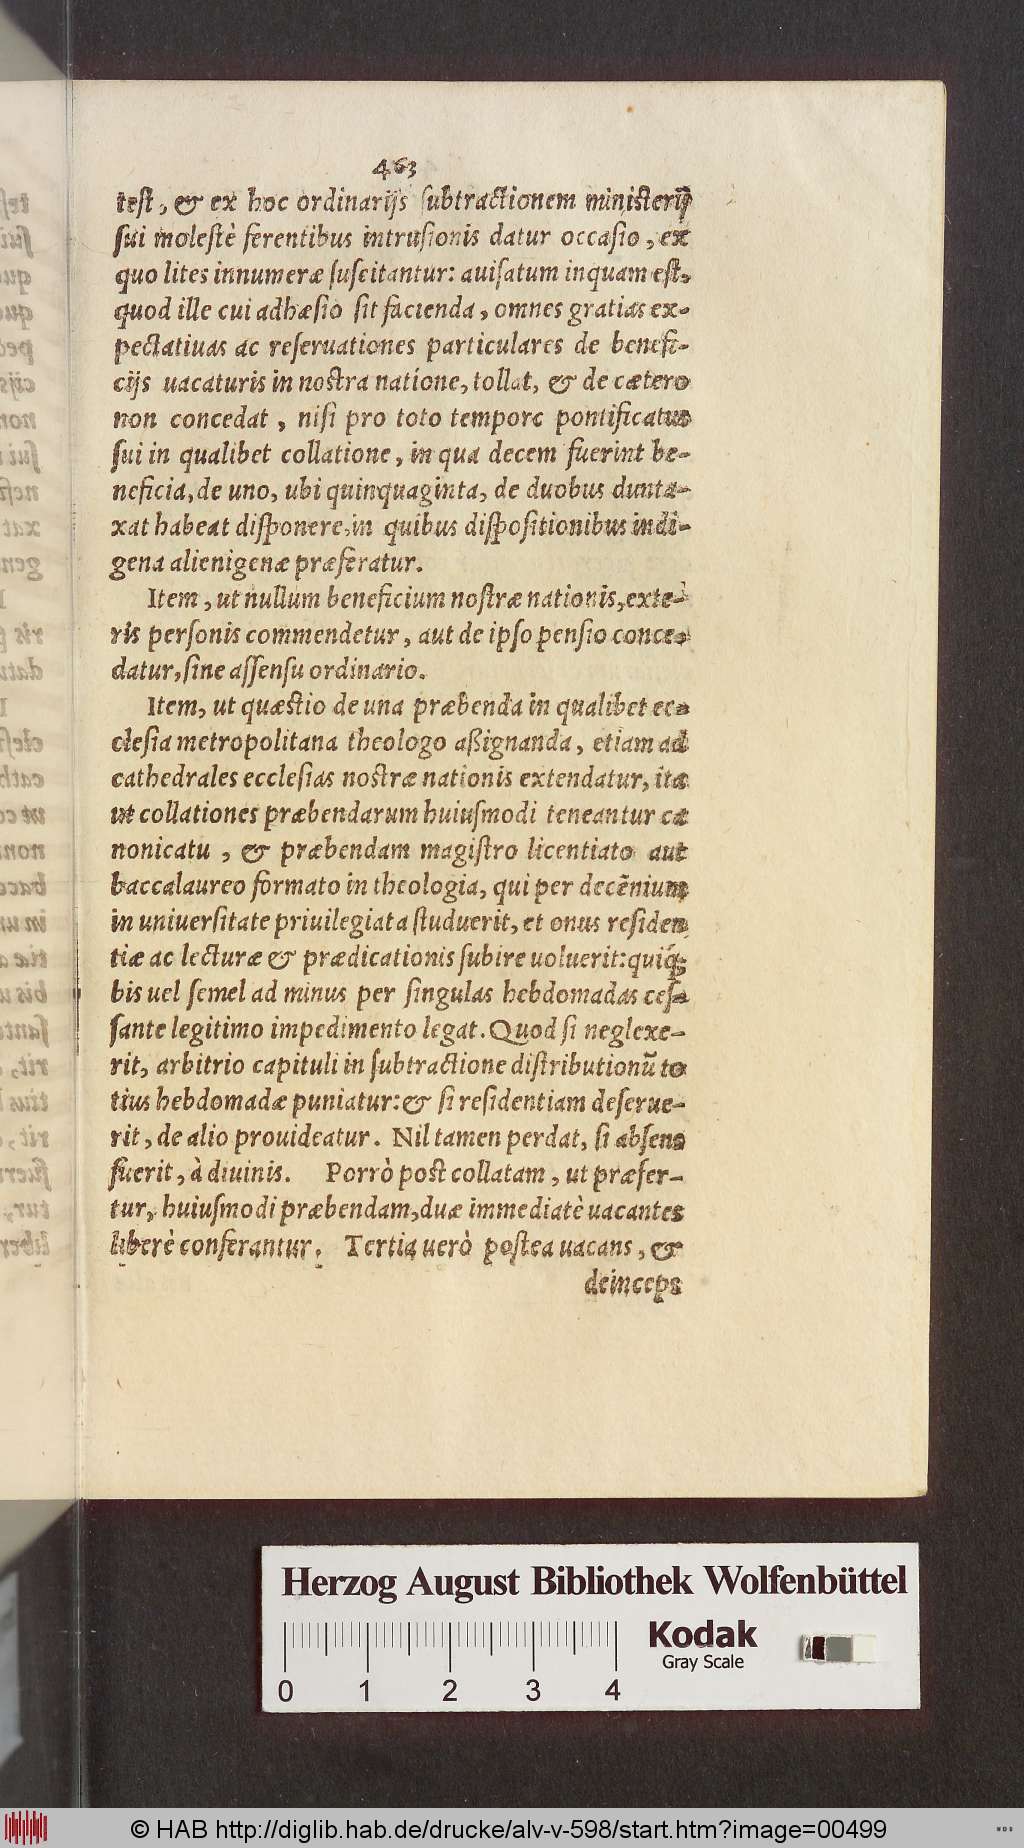 463
test, & ex hoc ordinarijs subtractionem ministerij
sui molestè ferentibus intrusionis datur occasio, ex
quo lites innumeræ suscitantur: auisatum inquam est,
quod ille cui adhæsio sit facienda, omnes gratias ex-
pectatiuas ac reseruationes particulares de benefi-
cijs uacaturis in nostra natione, tollat, & de cætero
non concedat, nisi pro toto tempore pontificatus
sui in qualibet collatione, in qua decem fuerint be-
neficia, de uno, ubi quinquaginta, de duobus dunta-
xat habeat disponere, in quibus dispositionibus indi-
gena alienigenæ præferatur.
Item, ut nullum beneficium nostræ nationis, exte-
ris personis commendetur, aut de ipso pensio conce-
datur, sine assensu ordinario.
Item, ut quæstio de una præbenda in qualibet ec-
clesia metropolitana theologo aßignanda, etiam ad
cathedrales ecclesias nostræ nationis extendatur, ita
ut collationes præbendarum huiusmodi teneantur ca
nonicatu, & præbendam magistro licentiato aut
baccalaureo formato in theologia, qui per decēnium
in uniuersitate priuilegiata studuerit, et onus residen
tiæ ac lecturæ & prædicationis subire uoluerit: quiq́;
bis uel semel ad minus per singulas hebdomadas ces-
sante legitimo impedimento legat. Quod si neglexe-
rit, arbitrio capituli in subtractione distributionū to
tius hebdomadæ puniatur: & si residentiam deserue-
rit, de alio prouideatur. Nil tamen perdat, si absens
fuerit, à diuinis. Porrò post collatam, ut præfer-
tur, huiusmodi præbendam, duæ immediatè uacantes
liberè conferantur. Tertia uerò postea uacans, &
deinceps
Herzog August Bibliothek Wolfenbüttel
Kodak
Gray Scale
0 1 2 3 4
© HAB http://diglib.hab.de/drucke/alv-v-598/start.htm?image=00499